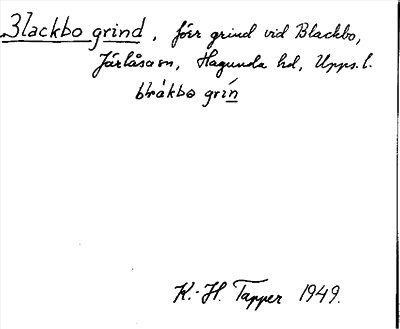 Blackbo grind, förr grind vid Blackbo,
Järlåsa sn, Hagunda hd, Upps. l.
blákbo grín
K.-H. Tapper 1949.